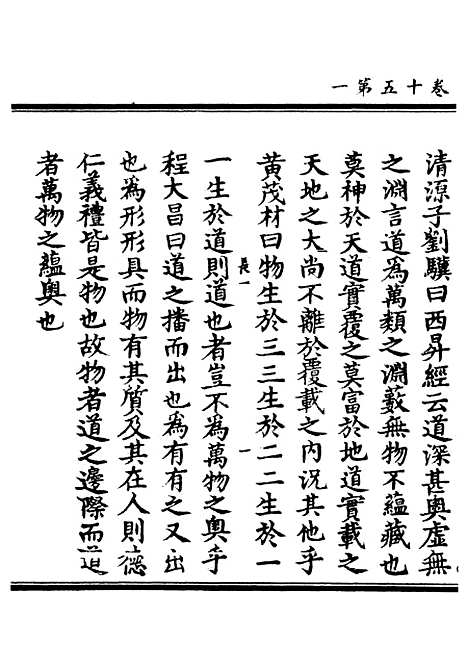 卷十五第一
清源子劉驥曰西昇經云道深甚奧虛無
之淵言道為萬類之淵藪無物不蘊藏也
莫神於天道實覆之莫富於地道實載之
天地之大尚不離於覆載之内況其他乎
黄茂材曰物生於三三生於二二生於一
長一
一
一生於道則道也者豈不為萬物之奧乎
程大昌曰道之播而出也為有有之又出
也為形形具而物有其質及其在人則德
仁義禮皆是物也故物者道之邊際而道
者萬物之蘊奧也